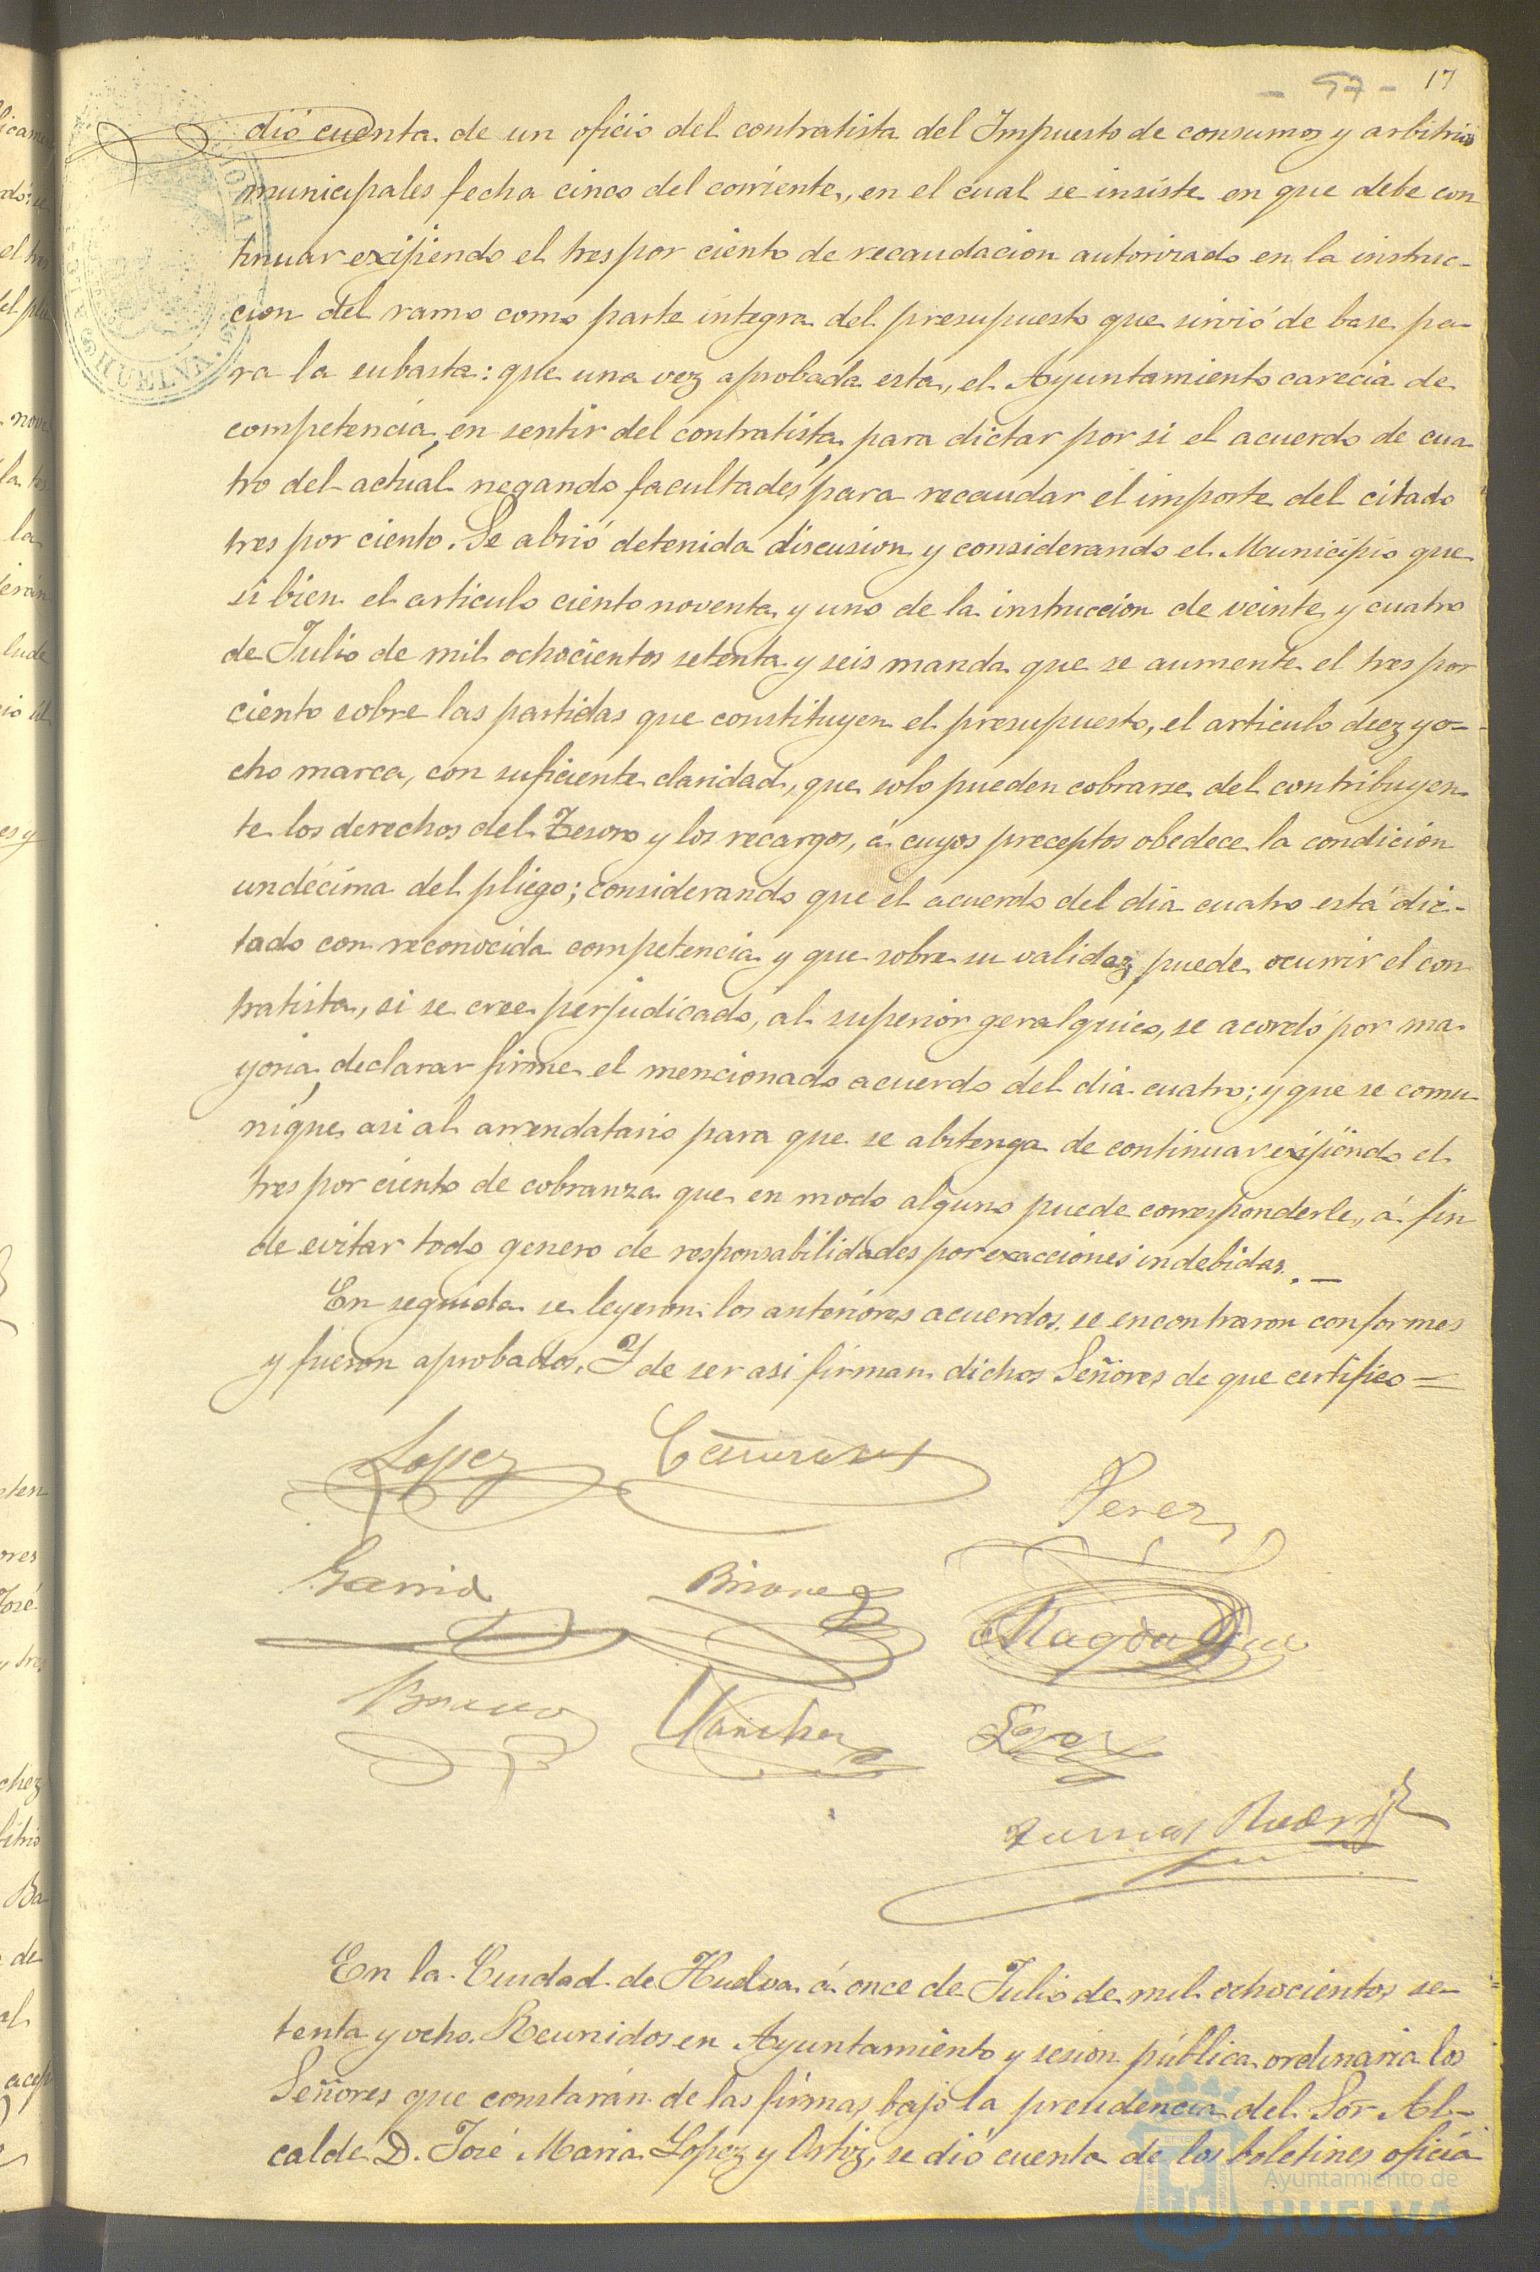 - 57 - 17
dió cuenta de un oficio del contratista del Impuesto de consumos y arbitrios
municipales fecha cinco del corriente, en el cual se insiste en que debe con
tinuar exijiendo el tres por ciento de recaudacion autorizado en la instruc-
cion del ramo como parte integra del presupuesto que sirvió de base pa-
ra la subasta: que una vez aprobada esta, el Ayuntamiento carecia de
competencia, en sentir del contratista, para dictar por si el acuerdo de cua
tro del actual negando facultades para recaudar el importe del citado
tres por ciento. Se abrió detenida discusion y considerando el Municipio que
si bien el articulo ciento noventa y uno de la instruccion de veinte y cuatro
de Julio de mil ochocientos setenta y seis manda que se aumente el tres por
ciento sobre las partidas que constituyen el presupuesto, el articulo diez y o-
cho marca, con suficiente claridad, que solo pueden cobrarse del contribuyen
te los derechos del Tesoro y los recargos, á cuyos preceptos obedece la condicion
undécima del pliego; considerando que el acuerdo del dia cuatro está dic-
tado con reconocida competencia y que sobre su validez puede ocurrir el con
tratista, si se cree perjudicado, al superior geralquico, se acordó por ma-
yoria, declarar firme el mencionado acuerdo del dia cuatro; y que se comu
nique asi al arrendatario para que se abstenga de continuar exijiendo el
tres por ciento de cobranza que en modo alguno puede corresponderle, á fin
de evitar todo genero de responsabilidades por exacciones indebidas. —
En seguida se leyeron los anteriores acuerdos, se encontraron conformes
y fueron aprobados. Y de ser asi firman dichos Señores de que certifico =
Lopez
Perez
Garrido Briones Magdalena
Sanchez Lopez
En la Ciudad de Huelva á once de Julio de mil ochocientos se-
tenta y ocho. Reunidos en Ayuntamiento y sesion pública ordinaria los
Señores que constarán de las firmas bajo la presidencia del Sor Al-
calde D. José Maria Lopez y Ortiz, se dió cuenta de los boletines oficia
HUELVA
Ayuntamiento de
HUELVA